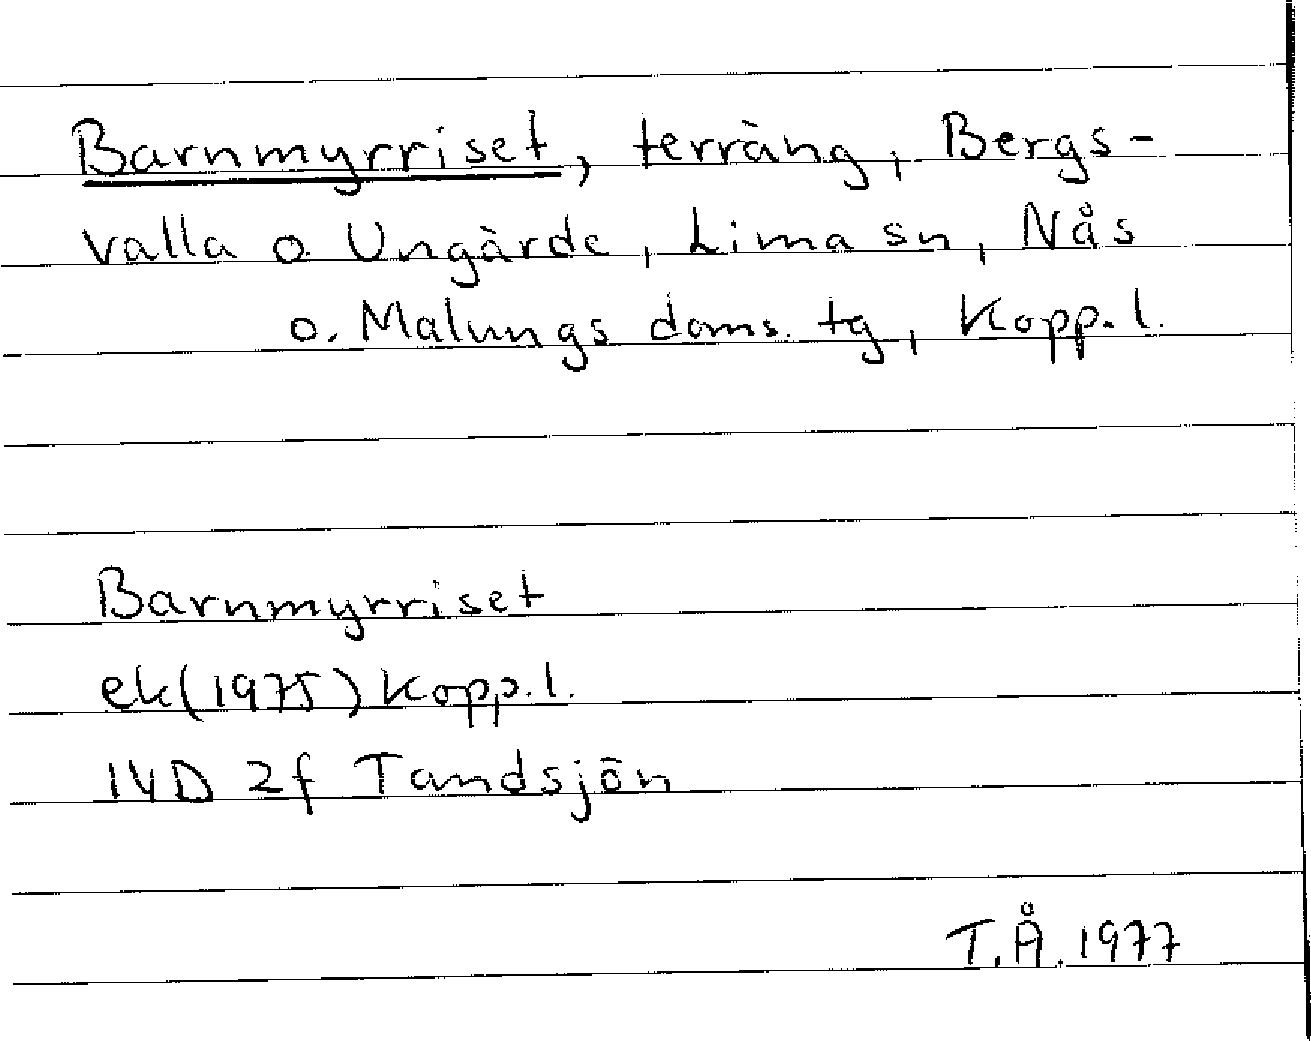 Barnmyrriset, terräng, Bergs-
valla o. Ungärde, Lima sn, Nås
o. Malungs doms. tg, Kopp. l.
Barnmyrriset
ek (1975) Kopp. l.
14D 2f Tandsjön
T.Å. 1977